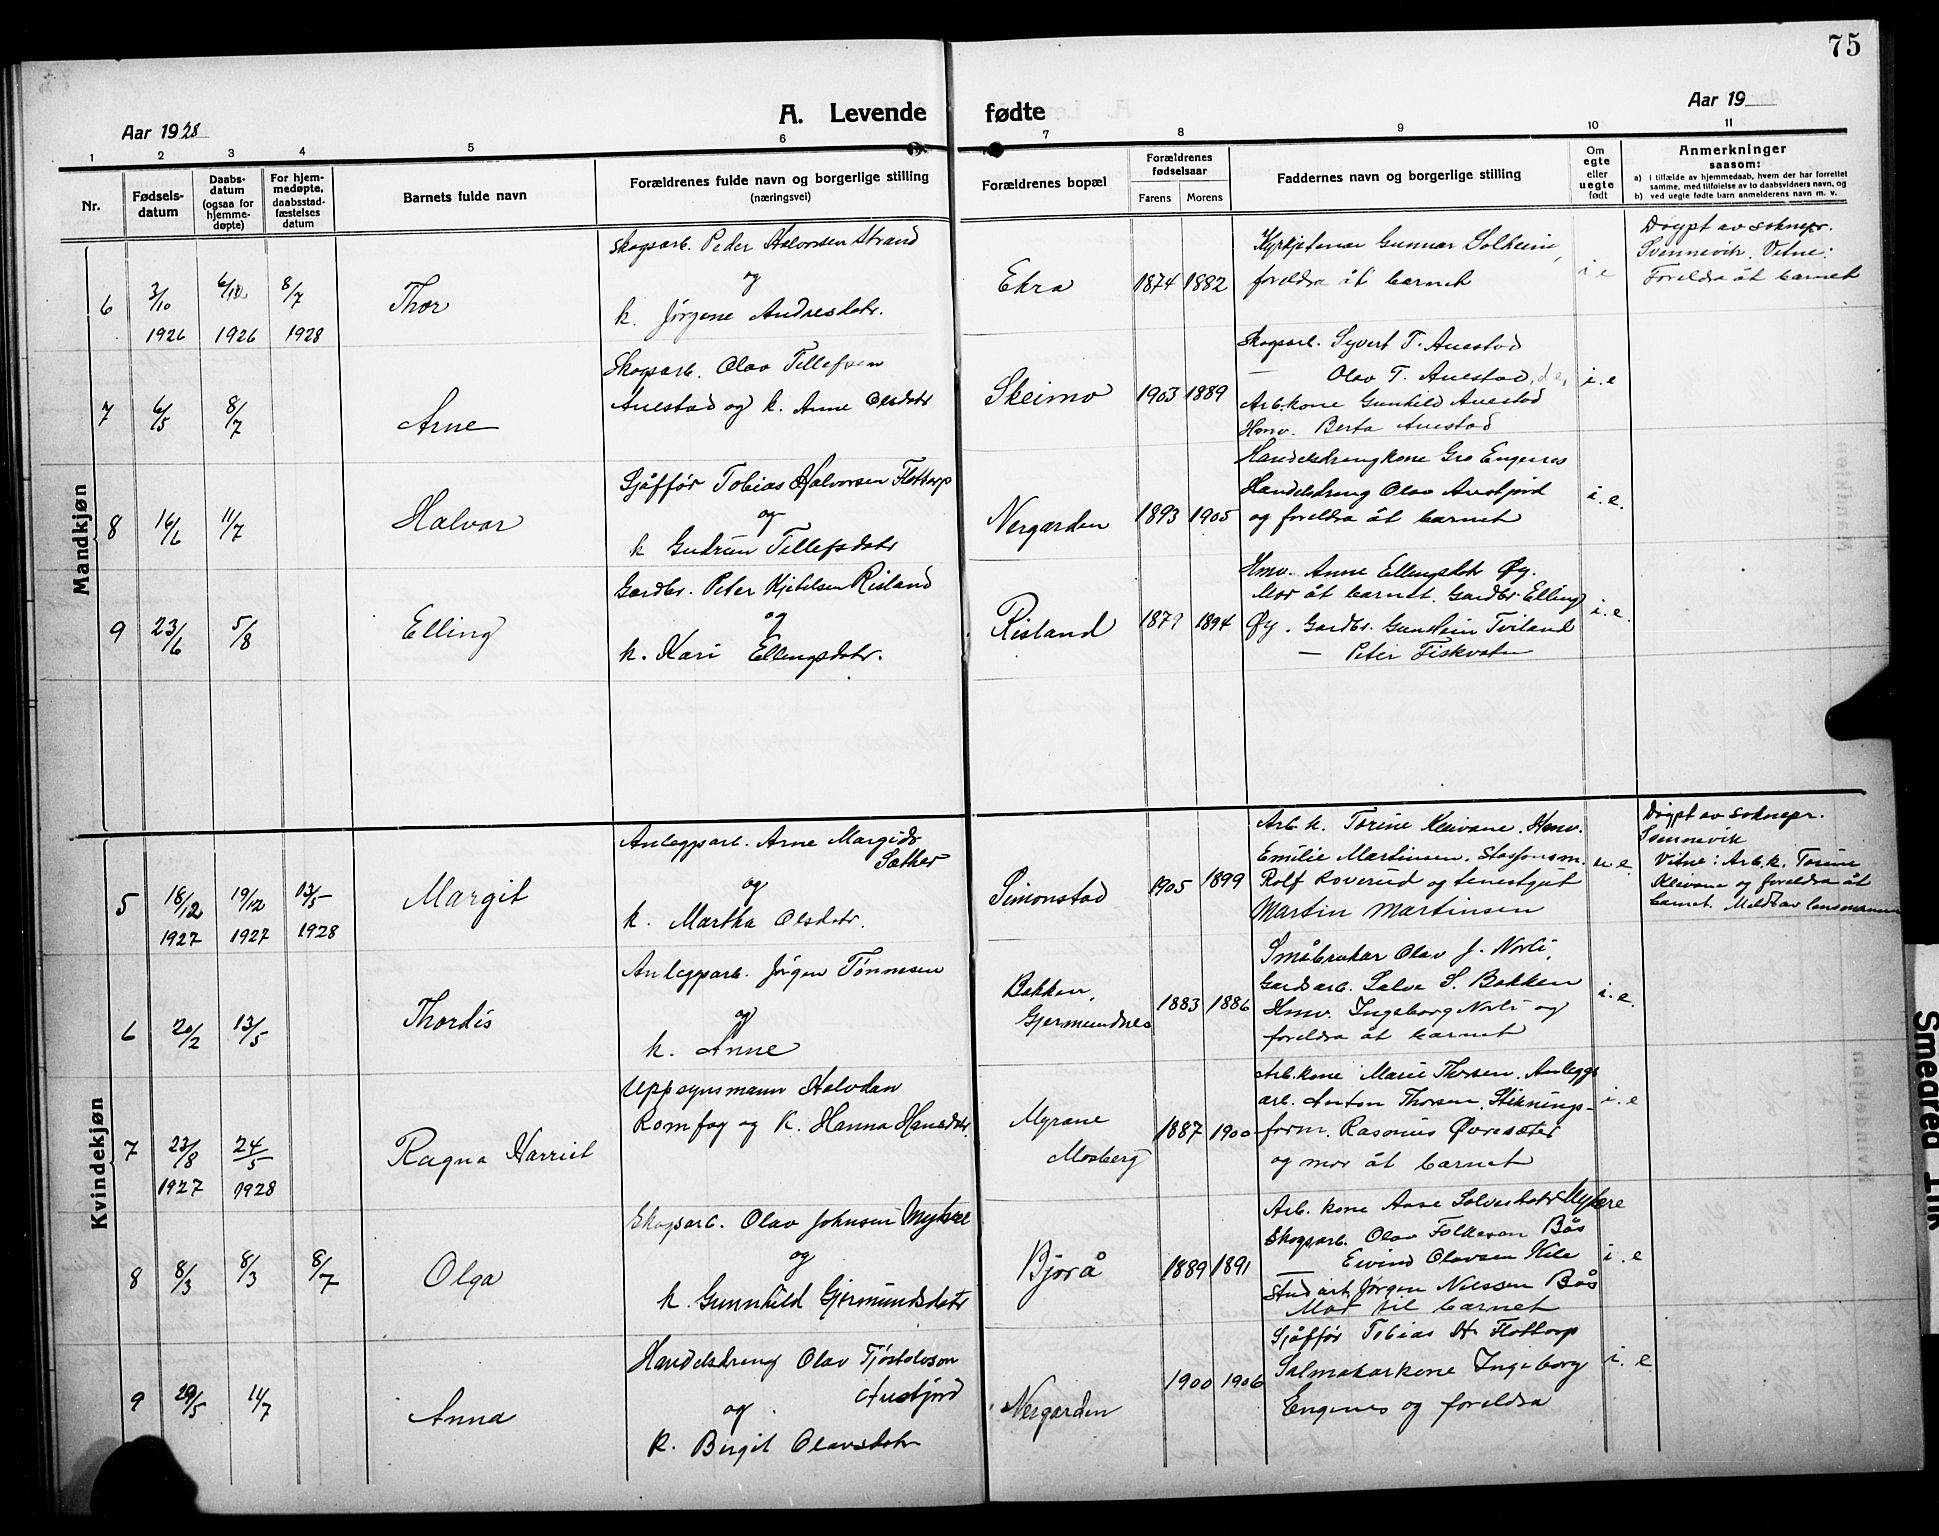 75
A. Levende fødte
Aar 1928
Aar 19
1 2 3 4 5 6 7 8 9 10 11
Nr.
Fødsels-
datum
Daabs-
datum
(ogsaa for
hjemme-
døpte)
For hjem-
medøpte,
daabsstad-
fæstelses
datum
Barnets fulde navn
Forældrenes fulde navn og borgerlige stilling
(næringsvei)
Forældrenes bopæl
Forældrenes
fødselsaar
Farens Morens
Faddernes navn og borgerlige stilling
Om
egte
eller
uegte
født
Anmerkninger
saasom:
a) i tilfælde av hjemmedaab, hvem der har forrettet
samme, med tilføielse av to daabsvidners navn, og
b) ved uegte fødte barn anmelderens navn m. v.
Mandkjøn
6
3/10
1926
6/12
1926
8/7
1928
Thor
Skogsarb. Peder Halvorsen Strand
og
k. Jørgine Andresdatr.
Ekra
1874 1882
Kyrkjetenar Gunnar Solheim,
foreldra åt barnet
i e
Døypt av soknepr.
Svennevik. Vitne:
Foreldra åt barnet
7
6/5
8/7
Arne
Skogsarb. Olav Tellefsen
Auestad og k. Anne Olsdatr
Skeimo
1903 1889
Skogsarb. Syvert T. Auestad
— Olav T. Auestad
Arb.kone Gunhild Auestad
Hmv. Berta Auestad
i. e
8
16/6
11/7
Halvor
Sjåffør Tobias Halvorsen Flottorp
og
k Gudrun Tellefsdatr
Nergarden
1893 1905
Handelsdrengkone Gro Engenes
Handelsdreng Olav Austjord
og foreldra åt barnet
i. e.
9
23/6
5/8
Elling
Gardbr. Peter Kjetilsen Risland
og
k. Kari Ellingsdatr.
Risland
1879 1894
Hmv. Anne Ellingsdtr Øy.
Mor åt barnet. Gardbr. Elling
Øy. Gardbr. Gunstein Tviland
— Peter Fiskvatn
i. e.
Kvindekjøn
5
18/12
1927
19/12
1927
13/5
1928
Margit
Anleggsarb. Arne Margido
Sæther
og
k. Martha Olsdatr.
Simonstad
1905 1899
Arb. k. Torine Kleivane. Hmv.
Emilie Martinsen. Stasjonsm.
Rolf Roverud og tenestgut
Martin Martinsen
u e.
Døypt av soknepr.
Svennevik
Vitne: Arb. k. Torine
Kleivane og foreldra åt
barnet. Meldt av lensmannen
6
20/2
13/5
Thordis
Anleggsarb. Jørgen Tønnesen
og
k. Anne
Bakken,
Gjermundnes
1883 1886
Småbrukar Olav J. Norli,
Gardsarb. Salve S. Bakken
Hmv. Ingeborg Norli og
foreldra åt barnet
i. e.
7
23/8
1927
24/5
1928
Ragna Harriet
Uppsynsmann Halvdan
Romfog og k. Hanna Hansdtr.
Myrane
Mosberg
1887 1900
Arb.kone Marie Thorsen. Anleggs
arb. Anton Thorsen. Stiknings-
form. Rasmus Øvresæter
og mor åt barnet
i. e
8
8/3
8/3
8/7
Olga
Skogsarb. Olav Johnsen Myhre
og
k. Gunnhild Gjermundsdatr
Bjorå
1889 1891
Arb. kone Aase Salvesdatr Myhre
Skogsarb. Olav Folkeson Bås
— Eivind Olavsen Kile
Stud art Jørgen Nilssen Bås
Mor til barnet
i. e
9
29/5
11/7
Anna
Handelsdreng Olav Tjøstolvson
Austjord
og
k. Birgit Olavsdatr
Nergarden
1900 1906
Sjåffør Tobias H. Flottorp
Salmakarkone Ingeborg
Engenes og foreldra
i. e
Smedred Trik